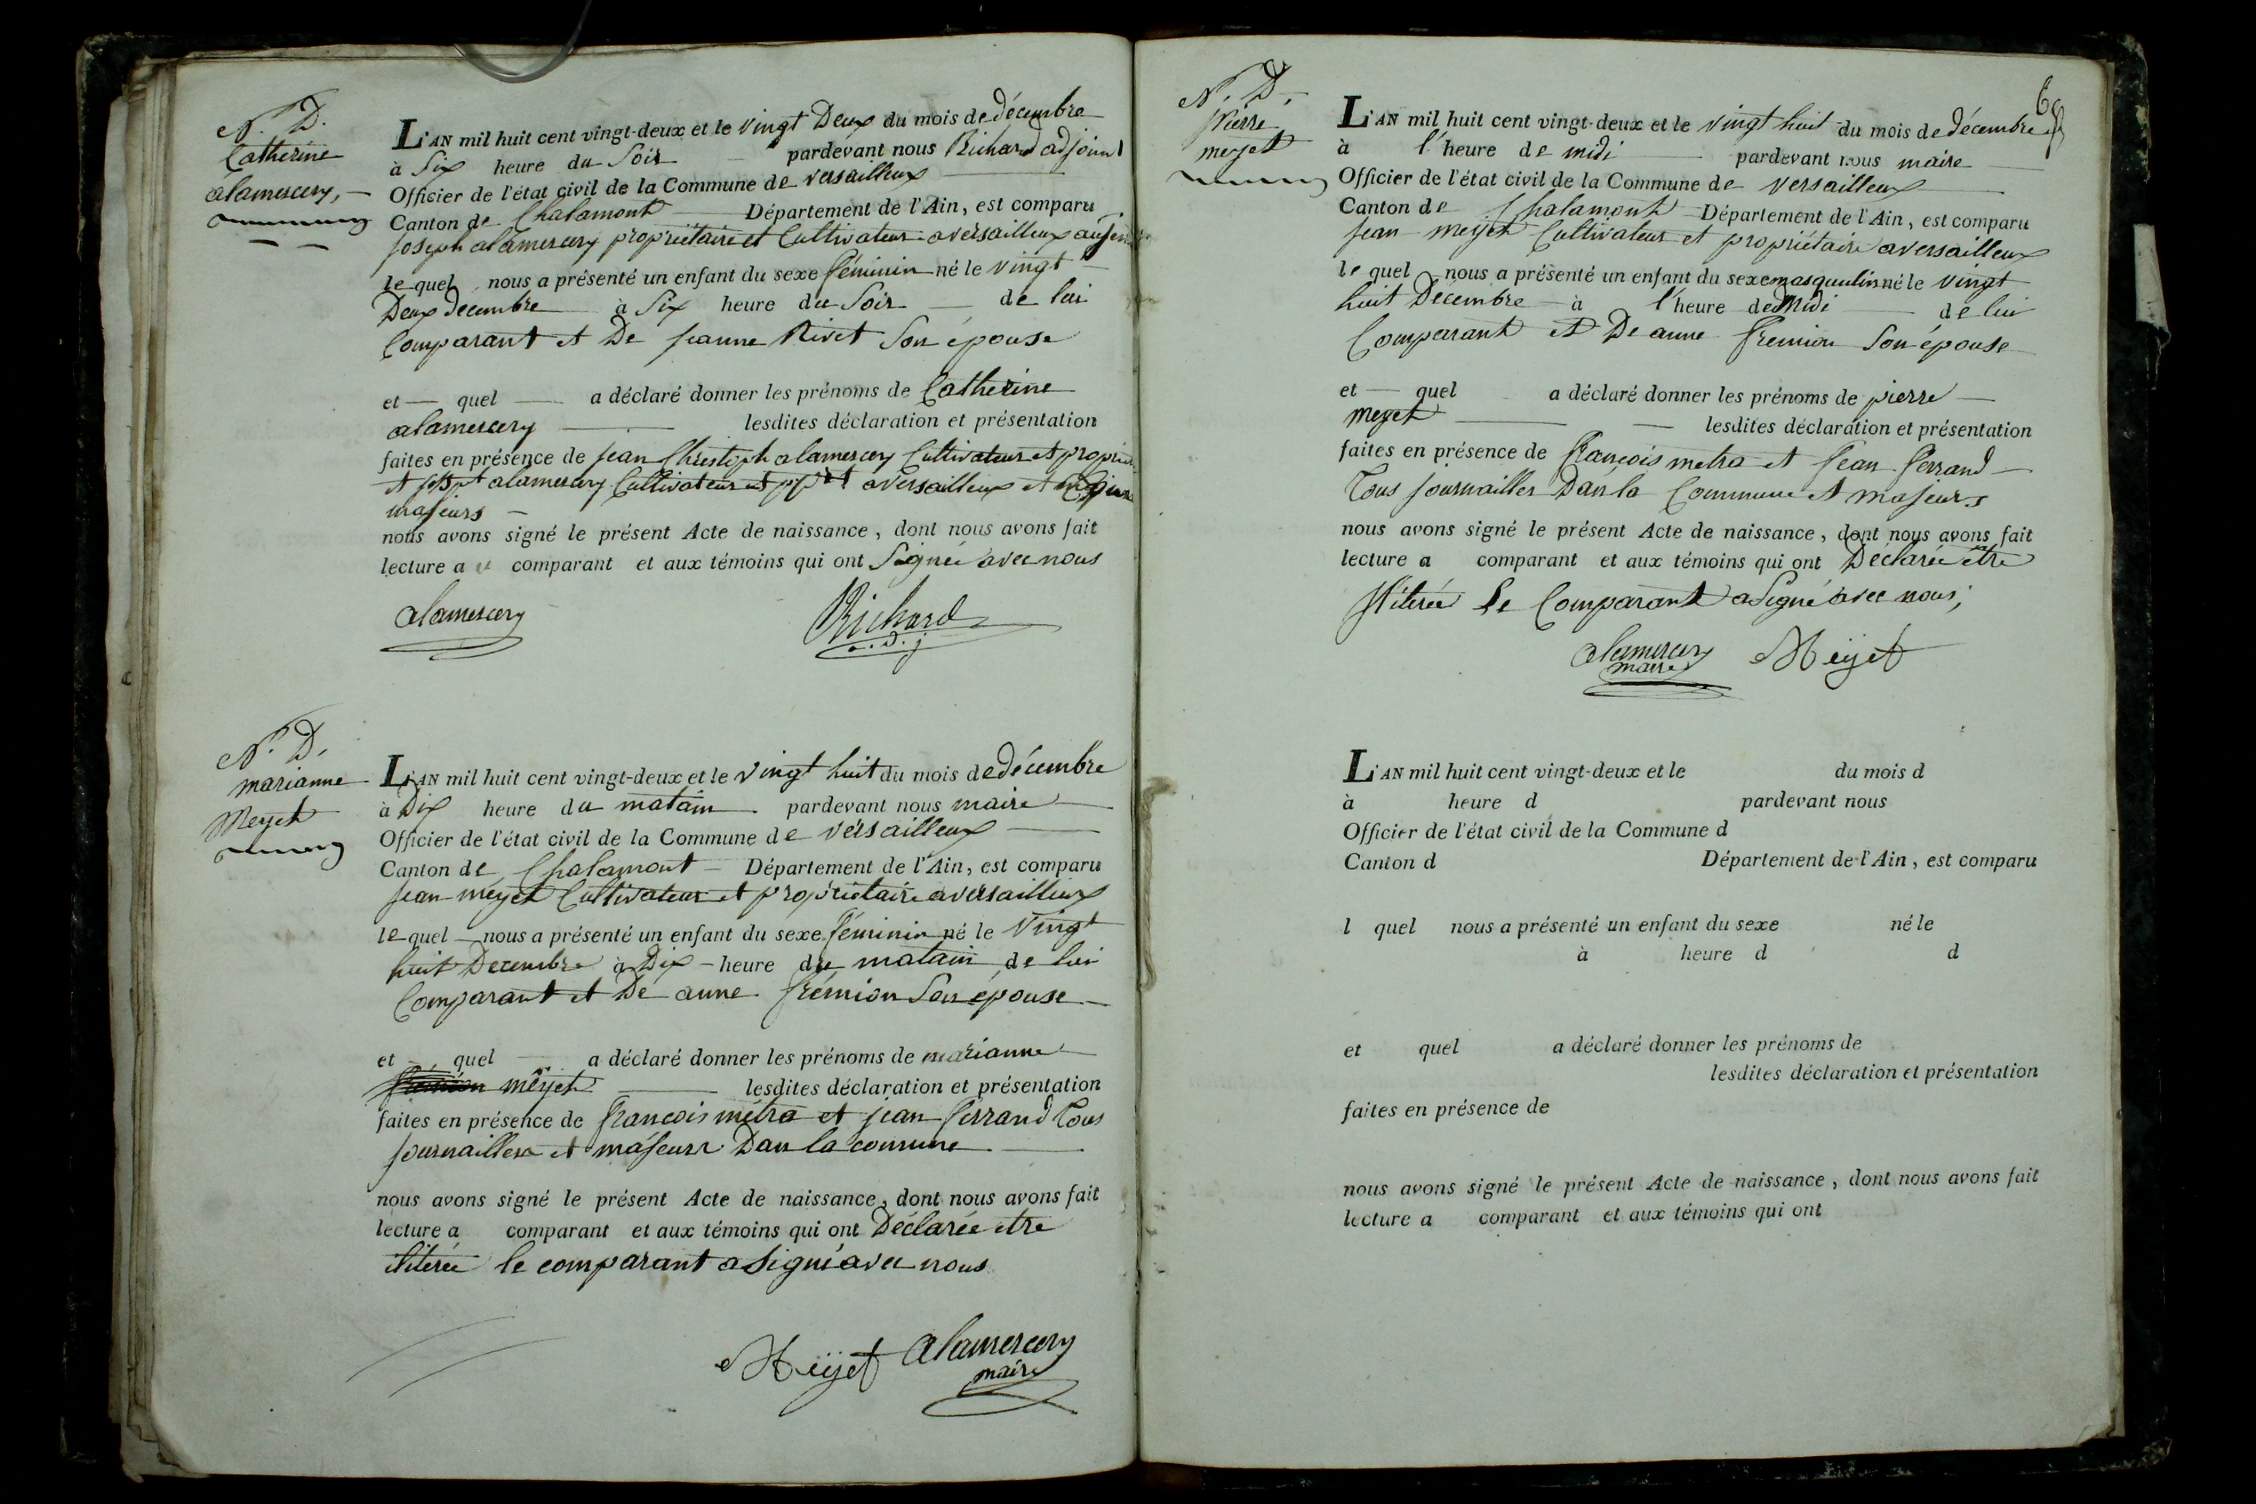 N. D.
Catherine
alamercery,
L'AN mil huit cent vingt-deux et le vingt Deux du mois de décembre
à Six heure du Soir pardevant nous Richard adjoint
Officier de l'état civil de la Commune de versailleux
Canton de Chalamont Département de l'Ain, est comparu
joseph alamercery propriétaire et Cultivateur a versailleux
le quel nous a présenté un enfant du sexe féminin né le vingt
Deux decembre à Six heure du Soir de lui
Comparant et De jeanne Rivet Son épouse
et quel a déclaré donner les prénoms de Catherine
alamercery lesdites déclaration et présentation
faites en présence de jean Christoph alamercery Cultivateur et
et alamercery Cultivateur et a versailleux et
majeurs
nous avons signé le présent Acte de naissance, dont nous avons fait
lecture a u comparant et aux témoins qui ont Signé avec nous
alamercery Richard
adj
N. D.
marianne
Meyet
L'AN mil huit cent vingt-deux et le vingt huit du mois de décembre
à Dix heure du matain pardevant nous maire
Officier de l'état civil de la Commune de versailleux
Canton de Chalamont Département de l'Ain, est comparu
jean meyet Cultivateur et propriétaire a versailleux
le quel nous a présenté un enfant du sexe féminin né le Vingt
huit Decembre à Dix heure du matain de lui
Comparant et De anne frémion Son épouse
et quel a déclaré donner les prénoms de marianne
frémion meyet lesdites déclaration et présentation
faites en présence de françois métra et jean ferrand Tous
journailler et majeurs Dans la commune
nous avons signé le présent Acte de naissance, dont nous avons fait
lecture a comparant et aux témoins qui ont Déclarée etre
iliterée le comparant a Signé avec nous
Meÿet alamercery
maire
N. D.
pierre
meyet
L'AN mil huit cent vingt-deux et le vingt huit du mois de décembre
à l'heure de midi pardevant nous maire
Officier de l'état civil de la Commune de versailleux
Canton de Chalamont Département de l'Ain, est comparu
jean meyet Cultivateur et propriétaire a versailleux
le quel nous a présenté un enfant du sexe masqulin né le vingt
huit Décembre à l'heure de Midi de lui
Comparant et De anne fremion Son épouse
et quel a déclaré donner les prénoms de pierre
meyet lesdites déclaration et présentation
faites en présence de françois metra et jean ferrand
Tous journailler Dan la Commune et majeurs
nous avons signé le présent Acte de naissance, dont nous avons fait
lecture a comparant et aux témoins qui ont Déclarée etre
iliterée Le Comparant a Signé avec nous;
alamercery Meÿet
maire
L'AN mil huit cent vingt-deux et le du mois d
à heure d pardevant nous
Officier de l'état civil de la Commune d
Canton d Département de l'Ain, est comparu
l quel nous a présenté un enfant du sexe né le
à heure d d
et quel a déclaré donner les prénoms de
lesdites déclaration et présentation
faites en présence de
nous avons signé le présent Acte de naissance, dont nous avons fait
lecture a comparant et aux témoins qui ont